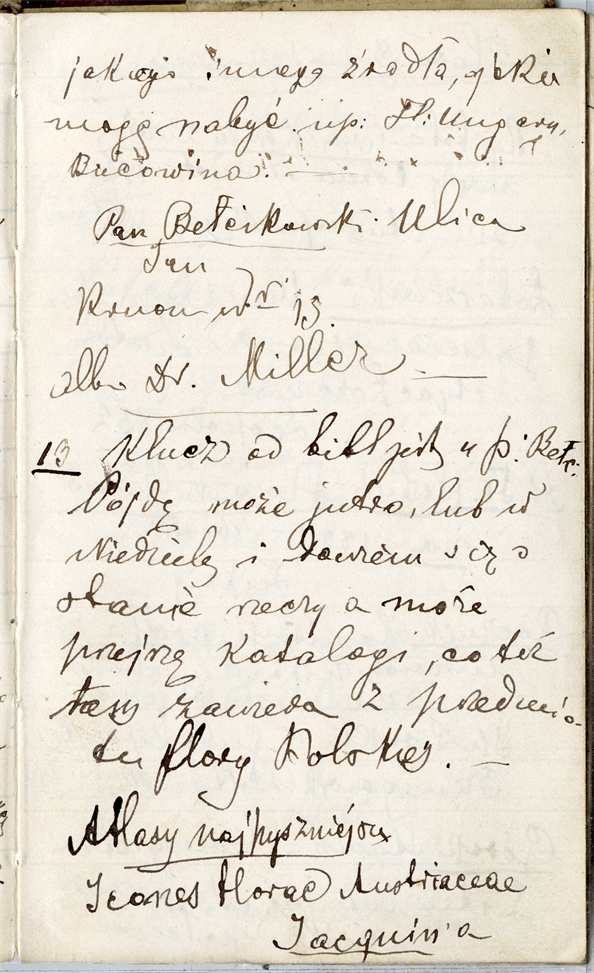 jakiego innego źródła, jakie
mogę nabyć. np: Fl: Ungary,
Bucowina. —
Pan Bełcikowski. Ulica
Jan
Krucza № 13.
albo Dr. Miller —
13 Klucz od bibljoty u p: Bełc:
Pójdę może jutro, lub w
Niedzielę i dowiem się o
stanie rzeczy a może
przejrzę Katalogi, co też
zawiera z przedmio-
tu flory Polskiej. —
Atlasy najpyszniejsze
Icones florae Austriaceae
Jacquin'a